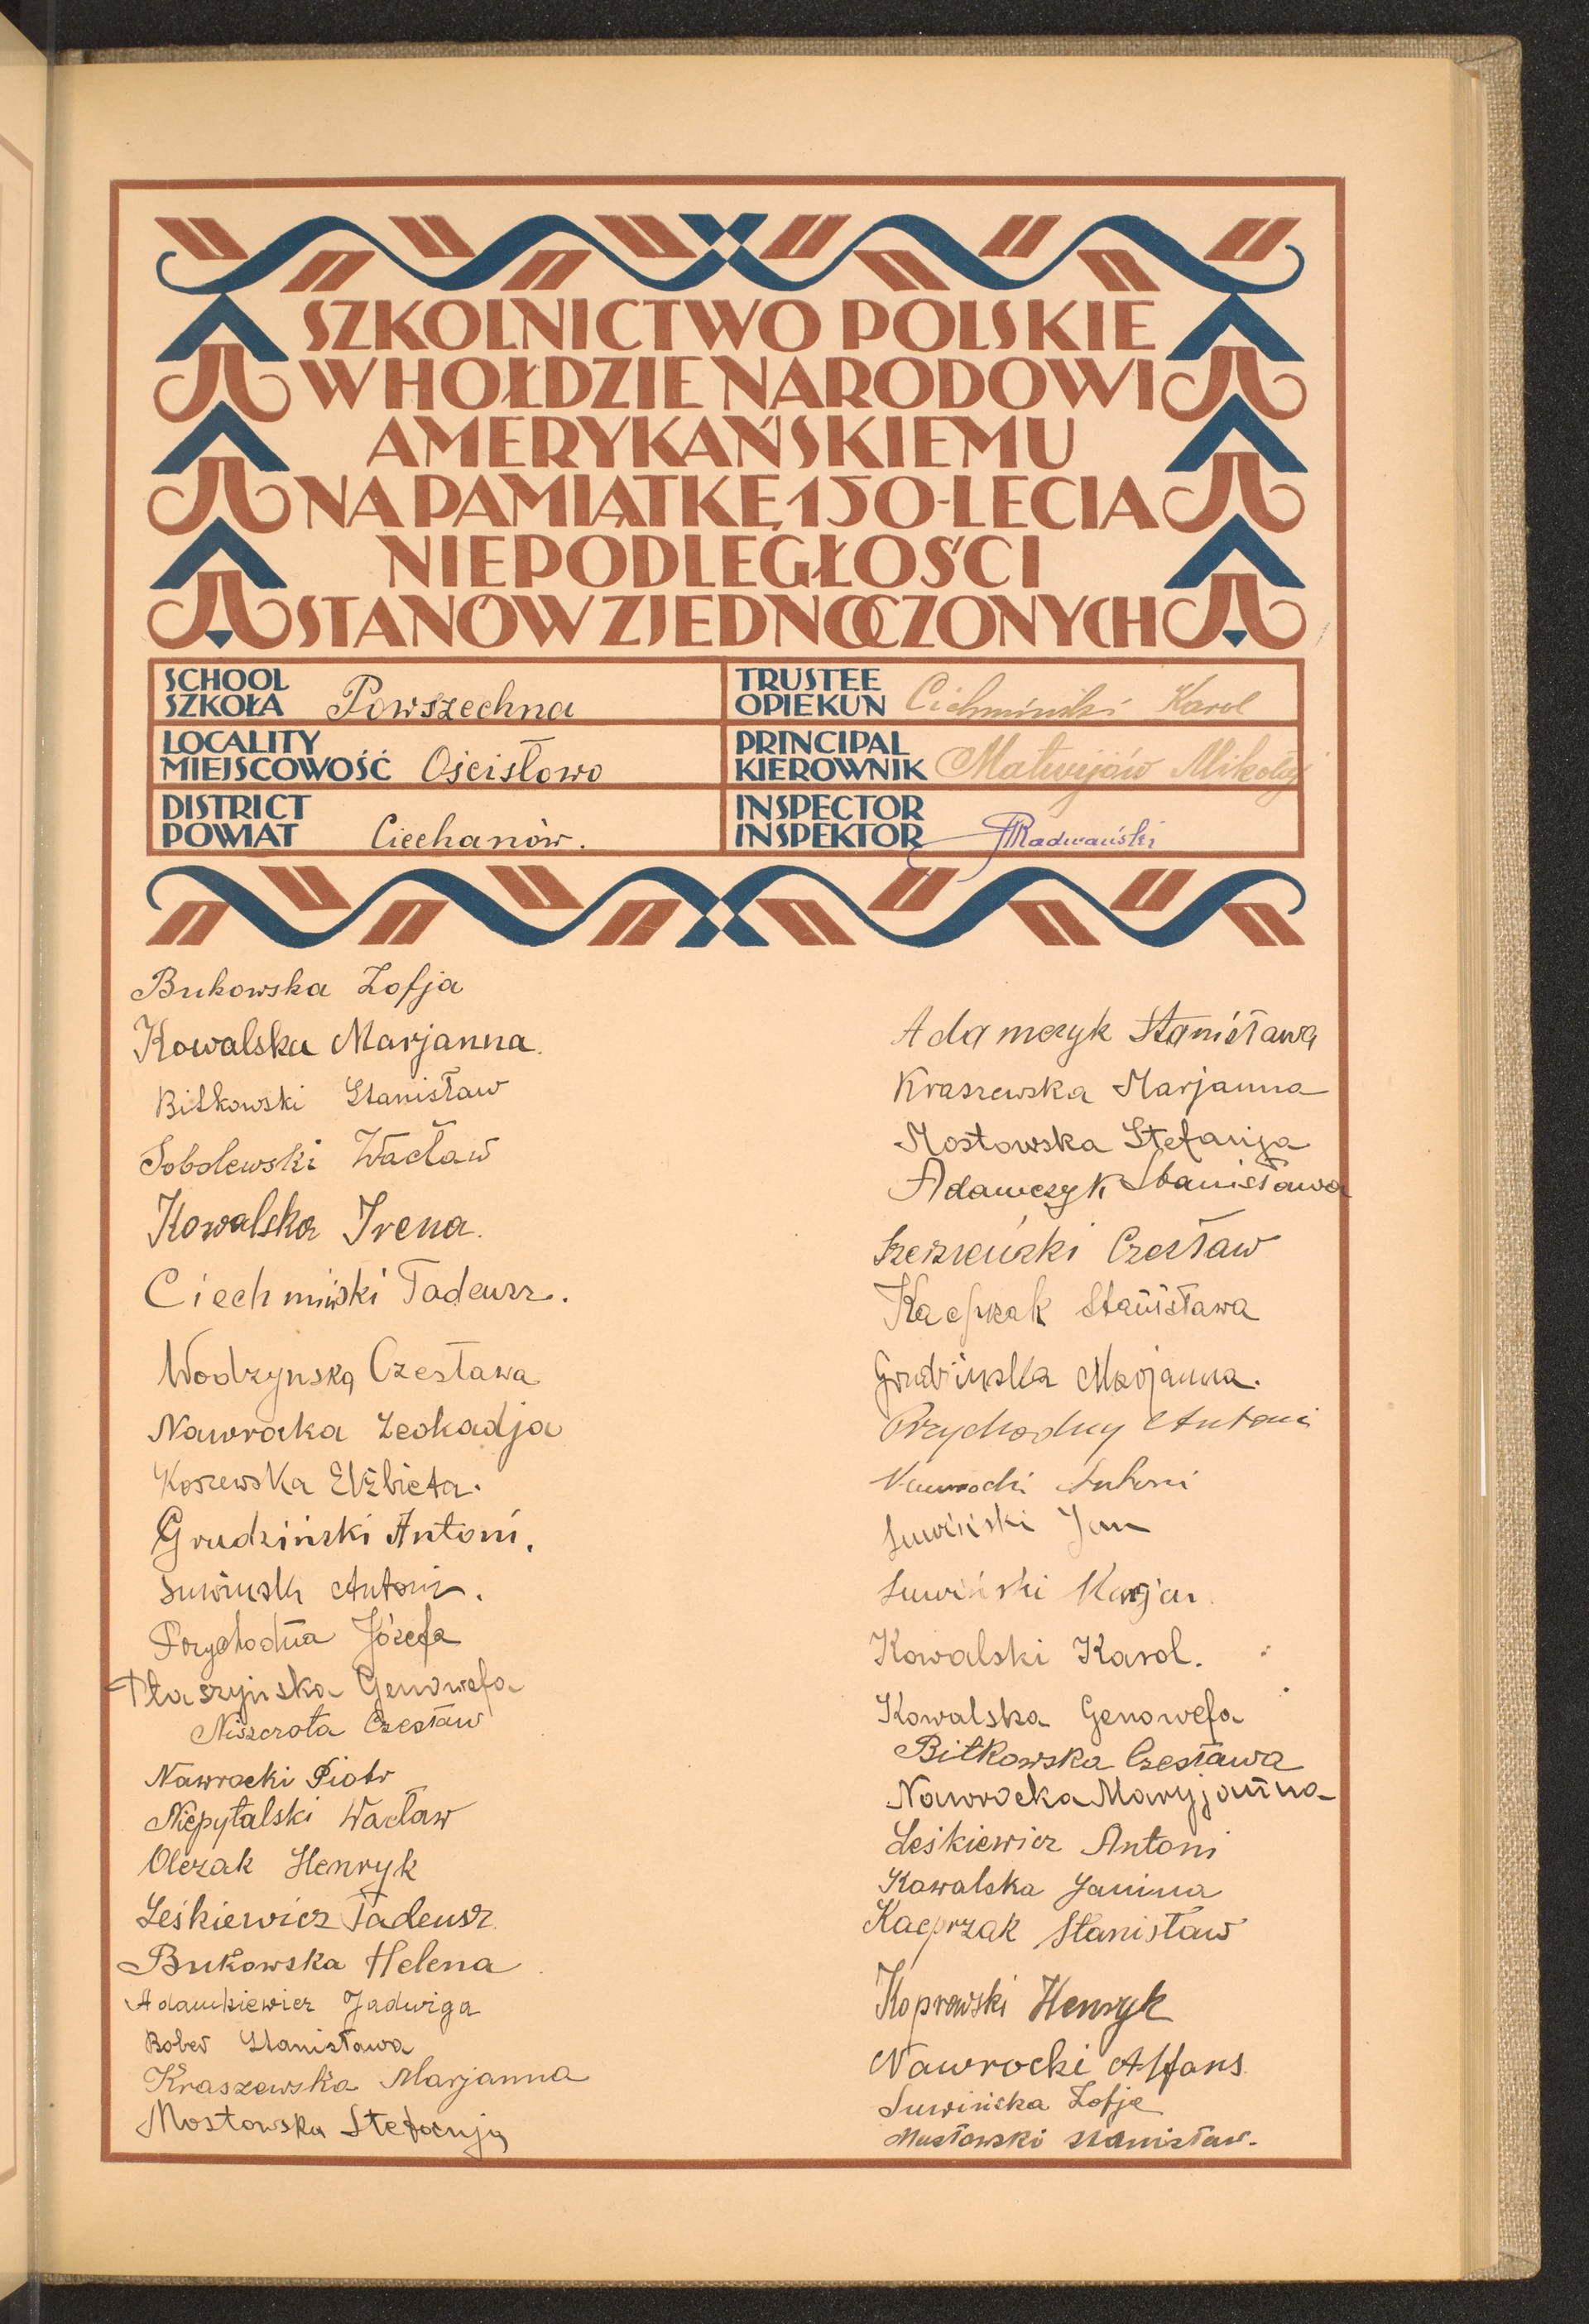 SZKOLNICTWO POLSKIE
W HOŁDZIE NARODOWI
AMERYKAŃSKIEMU
NA PAMIĄTKĘ 150-LECIA
NIEPODLEGŁOŚCI
STANÓW ZJEDNOCZONYCH
SCHOOL
SZKOŁA Powszechna
TRUSTEE
OPIEKUN Cichmiński Karol
LOCALITY
MIEJSCOWOŚĆ Ościsłowo
PRINCIPAL
KIEROWNIK Matwijów Mikołaj
DISTRICT
POWIAT Ciechanów.
INSPECTOR
INSPEKTOR Radwański
Bukowska Zofja
Kowalska Marjanna.
Bitkowski Stanisław
Sobolewski Wacław
Kowalska Irena.
Ciechmiński Tadeusz.
Wodzynska Czesława
Nawrocka Leokadja
Koszewska Elżbieta.
Grudziński Antoni.
Suwiński Antoni.
Przychodna Józefa
Płaszyńska Genowefa
Niszczota Czesław
Nawrocki Piotr
Niepytalski Wacław
Olczak Henryk
Leśkiewicz Tadeusz.
Bukowska Helena
Adamkiewicz Jadwiga
Bober Stanisława
Kraszewska Marjanna
Mostowska Stefanja
Adamczyk Stanisława
Kraszewska Marjanna
Mostowska Stefanja
Adamczyk Stanisława
Czesław
Kacprzak Stanisława
Grudzinska Marjanna.
Przychodny Antoni
Nawrocki Antoni
Suwiński Jan
Suwiński Marjan.
Kowalski Karol.
Kowalska Genowefa
Bitkowska Czesława
Nawrocka Maryjanna
Leśkiewicz Antoni
Kowalska Janina
Kacprzak Stanisław
Koprowski Henryk
Nawrocki Alfons
Suwińska Zofja
Mostowski Stanisław.